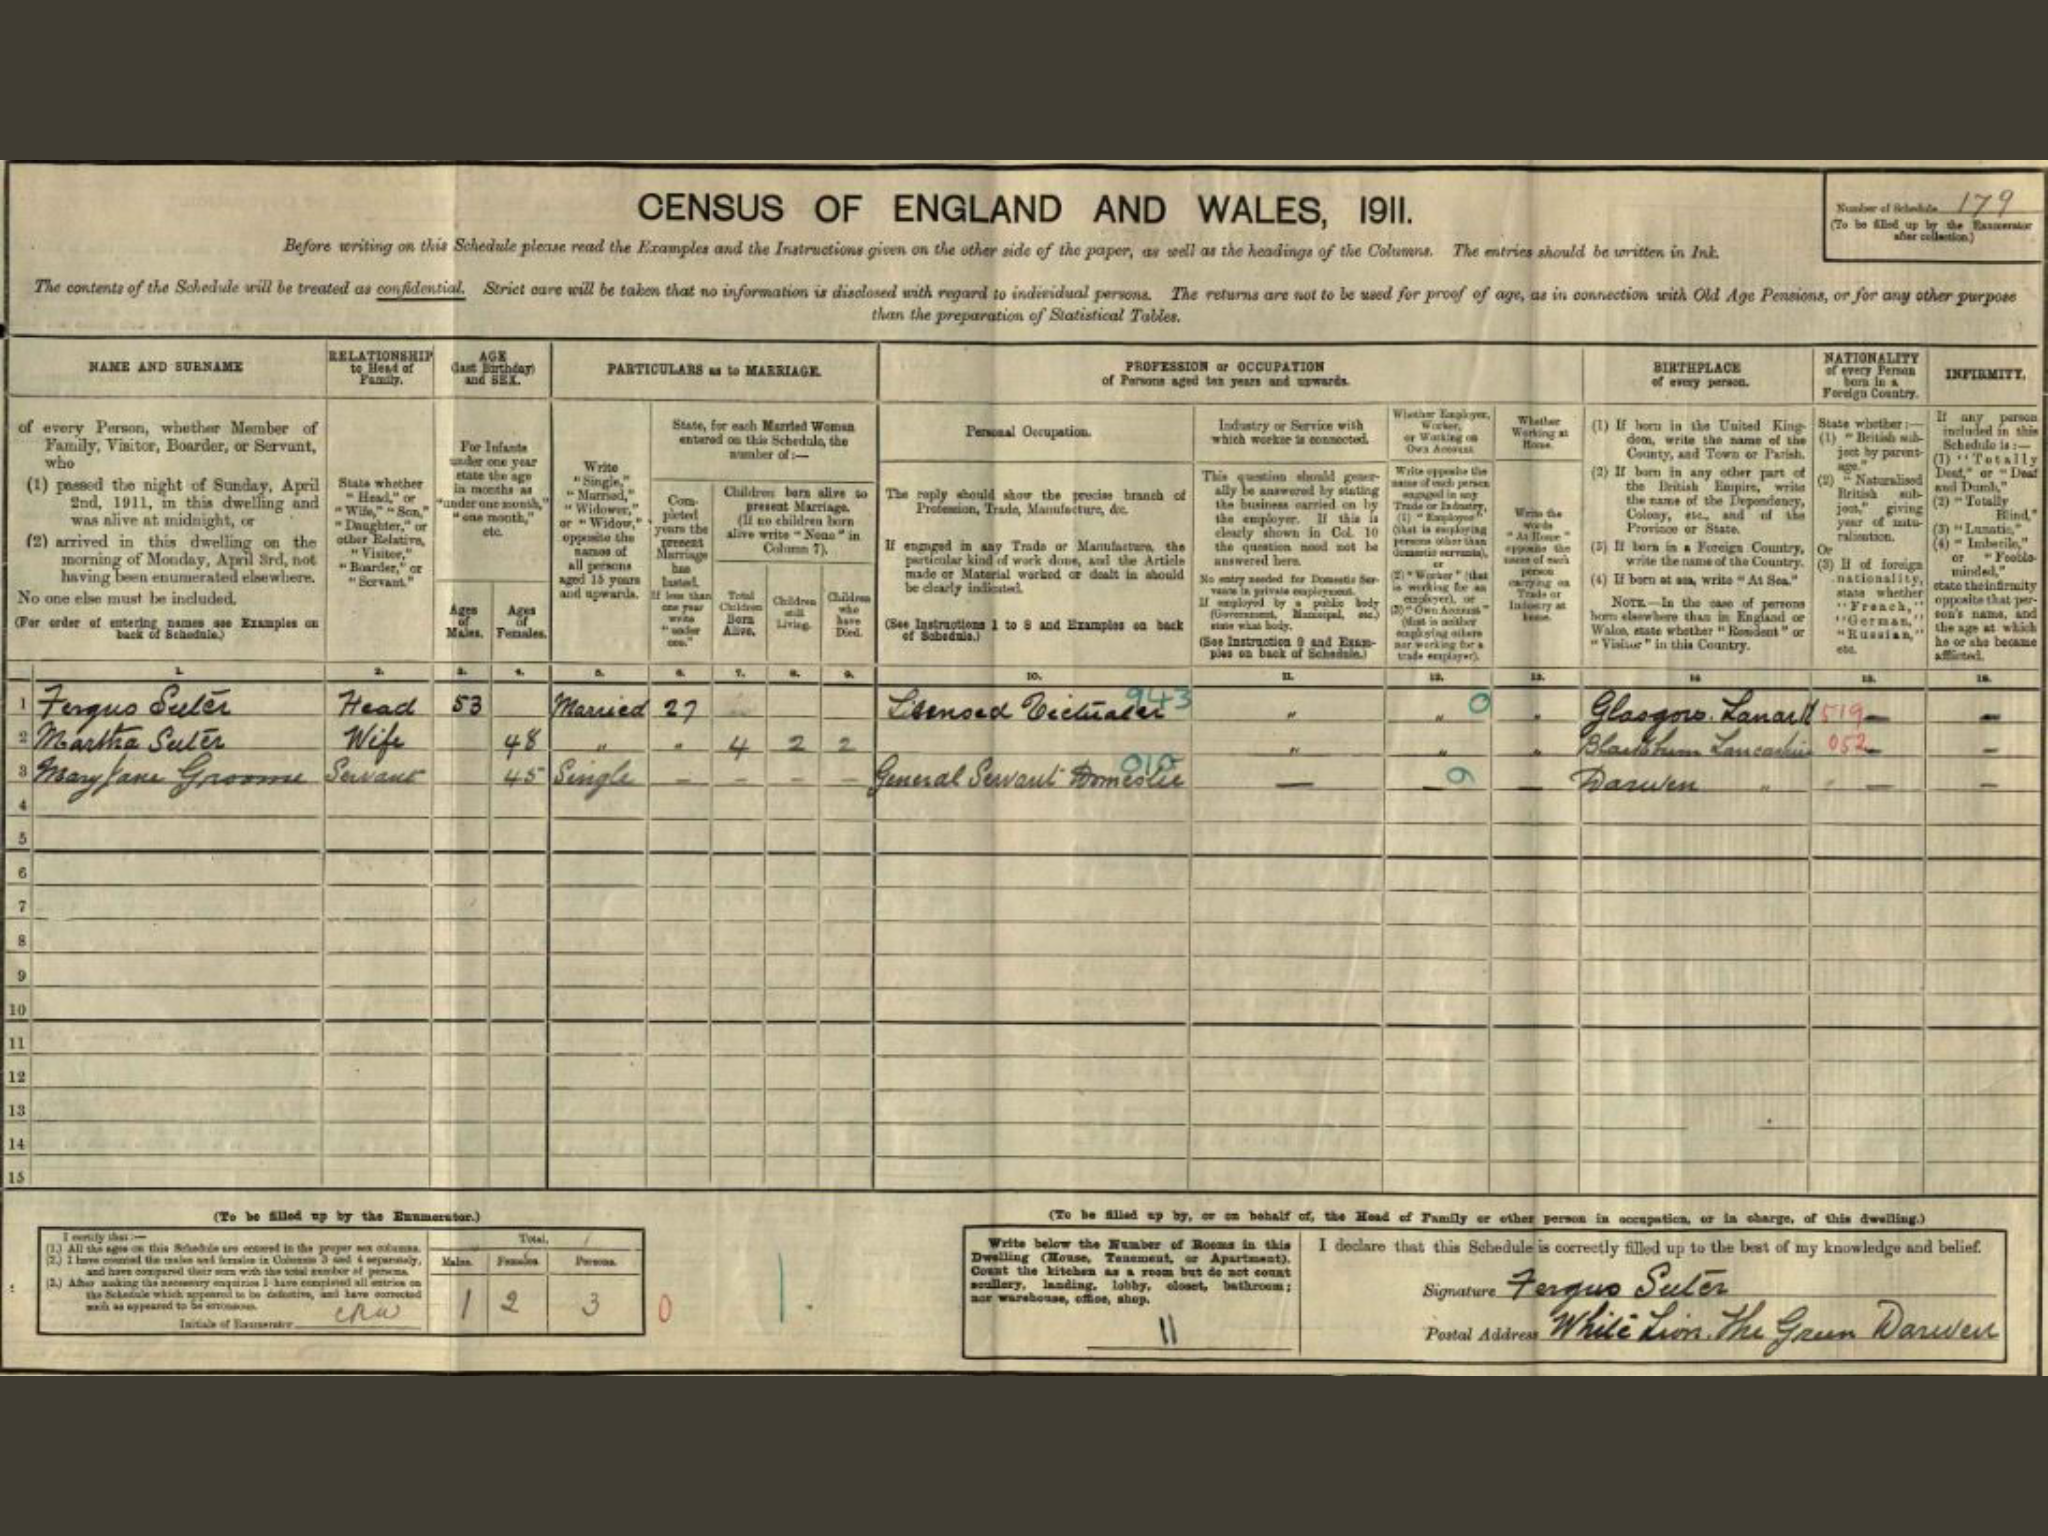 CENSUS OF ENGLAND AND WALES, 1911.
Number of Schedule 179
(To be filled up by the Enumerator
after collection.)
Before writing on this Schedule please read the Examples and the Instructions given on the other side of the paper, as well as the headings of the Columns. The entries should be written in Ink.
The contents of the Schedule will be treated as confidential. Strict care will be taken that no information is disclosed with regard to individual persons. The returns are not to be used for proof of age, as in connection with Old Age Pensions, or for any other purpose
than the preparation of Statistical Tables.
NAME AND SURNAME
of every Person, whether Member of
Family, Visitor, Boarder, or Servant,
who
(1) passed the night of Sunday, April
2nd, 1911, in this dwelling and
was alive at midnight, or
(2) arrived in this dwelling on the
morning of Monday, April 3rd, not
having been enumerated elsewhere.
No one else must be included.
(For order of entering names see Examples on
back of Schedule.)
RELATIONSHIP
to Head of
Family.
State whether
"Head," or
"Wife," "Son,"
"Daughter," or
other Relative,
"Visitor,"
"Boarder," or
"Servant."
AGE
(last Birthday)
and SEX.
For Infants
under one year
state the age
in months as
"under one month,"
"one month,"
etc.
Ages
of
Males.
Ages
of
Females.
PARTICULARS as to MARRIAGE.
Write
"Single,"
"Married,"
"Widower,"
or "Widow,"
opposite the
names of
all persons
aged 15 years
and upwards.
State, for each Married Woman
entered on this Schedule, the
number of:—
Com-
pleted
years the
present
Marriage
has
lasted.
If less than
one year
write
"under
one."
Children born alive to
present Marriage.
(If no children born
alive write "None" in
Column 7).
Total
Children
Born
Alive.
Children
still
Living.
Children
who
have
Died.
PROFESSION or OCCUPATION
of Persons aged ten years and upwards.
Personal Occupation.
The reply should show the precise branch of
Profession, Trade, Manufacture, &c.
If engaged in any Trade or Manufacture, the
particular kind of work done, and the Article
made or Material worked or dealt in should
be clearly indicated.
(See Instructions 1 to 8 and Examples on back
of Schedule.)
Industry or Service with
which worker is connected.
This question should gener-
ally be answered by stating
the business carried on by
the employer. If this is
clearly shown in Col. 10
the question need not be
answered here.
No entry needed for Domestic Ser-
vants in private employment.
If employed by a public body
(Government, Municipal, etc.)
state what body.
(See Instruction 9 and Exam-
ples on back of Schedule.)
Whether Employer,
Worker,
or Working on
Own Account
Write opposite the
name of each person
engaged in any
Trade or Industry,
(1) "Employer"
(that is employing
persons other than
domestic servants),
or
(2) "Worker" (that
is working for an
employer), or
(3) "Own Account"
(that is neither
employing others
nor working for a
trade employer).
Whether
Working at
Home.
Write the
words
"At Home"
opposite the
name of each
person
carrying on
Trade or
Industry at
home.
BIRTHPLACE
of every person.
(1) If born in the United King-
dom, write the name of the
County, and Town or Parish.
(2) If born in any other part of
the British Empire, write
the name of the Dependency,
Colony, etc., and of the
Province or State.
(3) If born in a Foreign Country,
write the name of the Country.
(4) If born at sea, write "At Sea."
NOTE.—In the case of persons
born elsewhere than in England or
Wales, state whether "Resident" or
"Visitor" in this Country.
NATIONALITY
of every Person
born in a
Foreign Country.
State whether:—
(1) "British sub-
ject by parent-
age,"
(2) "Naturalised
British sub-
ject," giving
year of natu-
ralisation.
Or
(3) If of foreign
nationality,
state whether
"French,"
"German,"
"Russian,"
etc.
INFIRMITY.
If any person
included in this
Schedule is:—
(1) "Totally
Deaf," or "Deaf
and Dumb,"
(2) "Totally
Blind,"
(3) "Lunatic,"
(4) "Imbecile,"
or "Feeble-
minded,"
state the infirmity
opposite that per-
son's name, and
the age at which
he or she became
afflicted.
1. 2. 3. 4. 5. 6. 7. 8. 9. 10. 11. 12. 13. 14 15. 16.
1 Fergus Suter Head 53 Married 27 Licensed Victualer 943 " " 0 " Glasgow. Lanark 519 — —
2 Martha Suter Wife 48 " " 4 2 2 " " " Blackburn Lancashire 052 — —
3 Mary Jane Groome Servant 45 Single — — — — General Servant Domestic 010 — — 9 — Darwen " — —
4
5
6
7
8
9
10
11
12
13
14
15
(To be filled up by the Enumerator.)
I certify that:—
(1.) All the ages on this Schedule are entered in the proper sex columns.
(2.) I have counted the males and females in Columns 3 and 4 separately,
and have compared their sum with the total number of persons.
(3.) After making the necessary enquiries I have completed all entries on
the Schedule which appeared to be defective, and have corrected
such as appeared to be erroneous.
Initials of Enumerator
Total.
Males. Females. Persons.
1 2 3
0
1
(To be filled up by, or on behalf of, the Head of Family or other person in occupation, or in charge, of this dwelling.)
Write below the Number of Rooms in this
Dwelling (House, Tenement, or Apartment).
Count the kitchen as a room but do not count
scullery, landing, lobby, closet, bathroom;
nor warehouse, office, shop.
11
I declare that this Schedule is correctly filled up to the best of my knowledge and belief.
Signature Fergus Suter
Postal Address White Lion. The Green Darwen